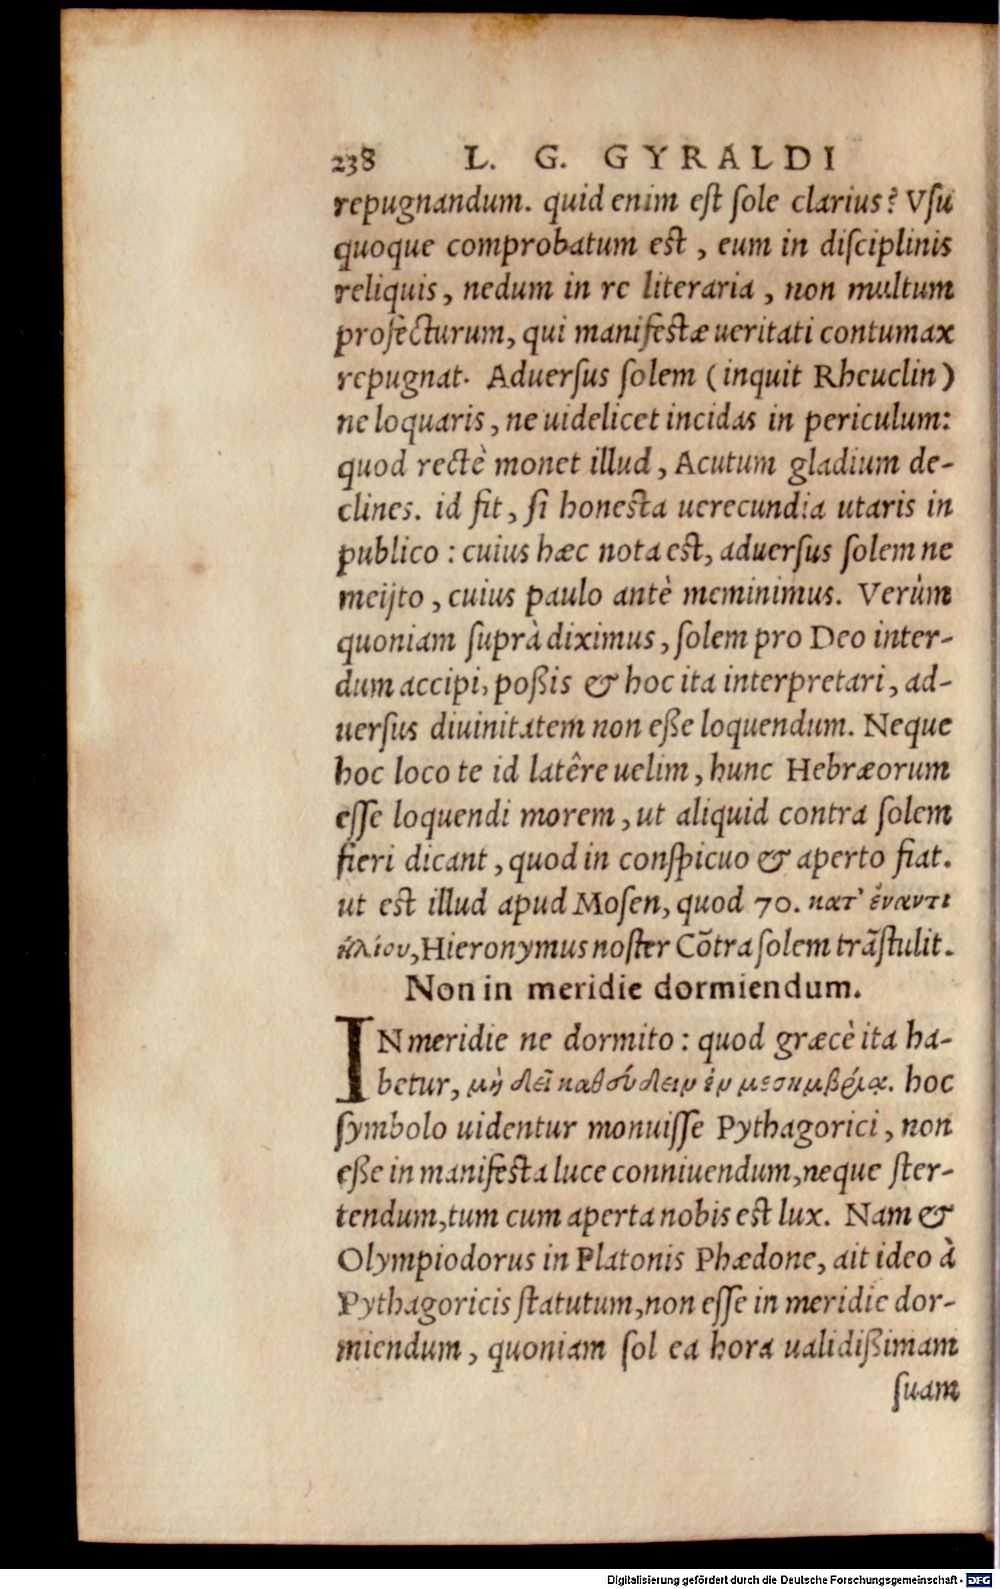 238 L. G. GYRALDI
repugnandum. quid enim eſt ſole clarius? Vſu
quoque comprobatum eſt, eum in diſciplinis
reliquis, nedum in re literaria, non multum
profecturum, qui manifeſtæ ueritati contumax
repugnat. Aduerſus ſolem (inquit Rheuclin)
ne loquaris, ne uidelicet incidas in periculum:
quod rectè monet illud, Acutum gladium de-
clines. id fit, ſi honeſta uerecundia utaris in
publico: cuius hæc nota eſt, aduerſus ſolem ne
meijto, cuius paulo antè meminimus. Verùm
quoniam ſuprà diximus, ſolem pro Deo inter-
dum accipi, poßis & hoc ita interpretari, ad-
uerſus diuinitatem non eße loquendum. Neque
hoc loco te id latêre uelim, hunc Hebræorum
eſſe loquendi morem, ut aliquid contra ſolem
fieri dicant, quod in conſpicuo & aperto fiat.
ut eſt illud apud Moſen, quod 70. κατ' ἔναντι
ἡλίου, Hieronymus noſter Cõtra ſolem trãſtulit.
Non in meridie dormiendum.
IN meridie ne dormito: quod græcè ita ha-
betur, μὴ δεῖ καθεύδειν ἐν μεσημβρίᾳ. hoc
ſymbolo uidentur monuiſſe Pythagorici, non
eße in manifeſta luce conniuendum, neque ſter-
tendum, tum cum aperta nobis eſt lux. Nam &
Olympiodorus in Platonis Phædone, ait ideo à
Pythagoricis ſtatutum, non eſſe in meridie dor-
miendum, quoniam ſol ea hora ualidißimam
ſuam
Digitalisierung gefördert durch die Deutsche Forschungsgemeinschaft - DFG